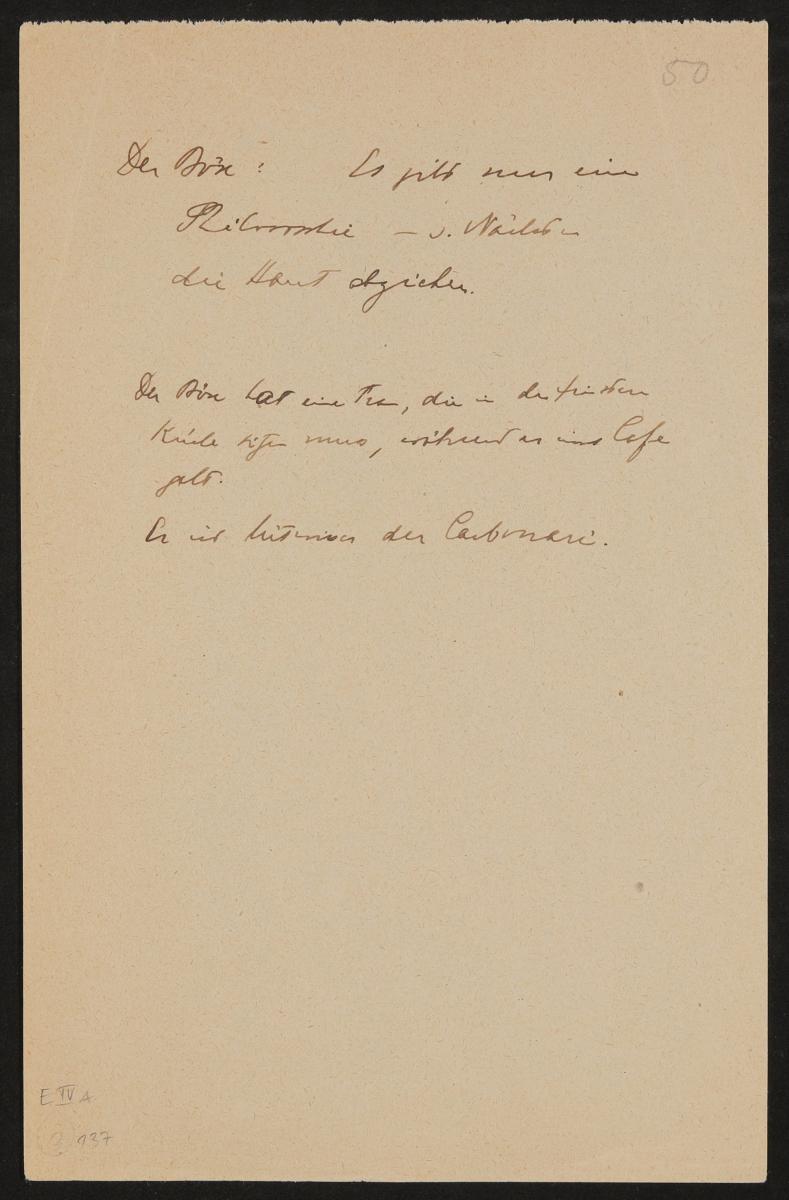 50
Der Böse: Es gibt nur eine
Philosophie – d. Nächsten
die Haut abziehen.
Der Böse hat eine Frau, die in der finstern
Küche sitzen muss, während er ins Cafe
geht.
Er ist Mitwisser der Carbonari.
E IV A
137